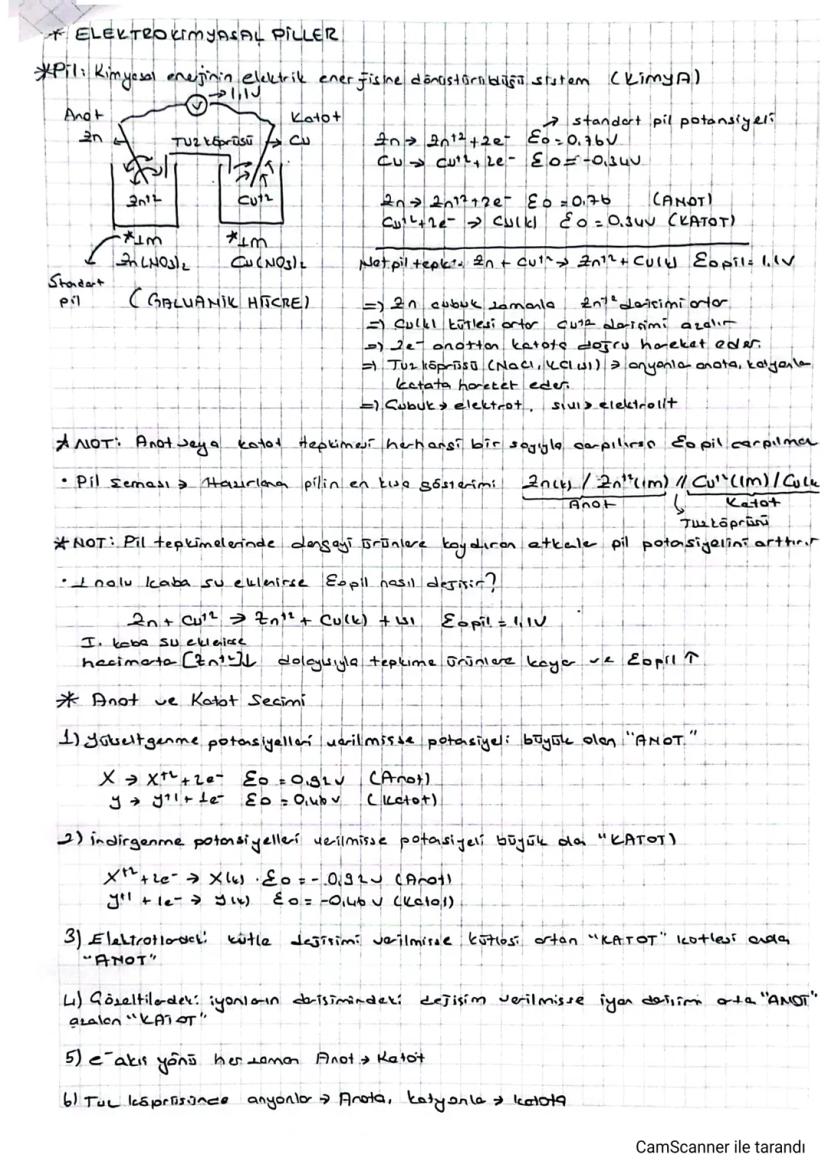 * ELEKTROKİMYASAL PİLLER
*Pil: Kimyasal enerjinin elektrik enerjisine dönüştürüldüğü sistem (KimyA)
→ 1,1V
V
Anot
Zn
TUZ köprüsü
Katot
Cu
Zn+2
Cu+2
*1M
Zn(NO3)2
*1M
Cu(NO3)2
Standart
pil
(GALVANİK HÜCRE)
→ standart pil potansiyeli
Zn → Zn+2 + 2e- Eo = 0.76V
Cu → Cu+2 + 2e- Eo = -0,34V
Zn → Zn+2 + 2e- Eo = 0,76 (ANOT)
Cu+2 + 2e- → Cu(k) Eo = 0.34V (KATOT)
Net pil tepk: Zn + Cu+2 → Zn+2 + Cu(k) Eopil = 1.1V
=) Zn çubuk zamanla Zn+2 derişimi artar
=) Cu(k) kütlesi artar Cu+2 derişimi azalır
=) 2e- anottan katota doğru hareket eder.
=) Tuz köprüsü (NaCl, KCl vs) → anyonlar anota, katyonla
katata hareket eder.
=) Çubuk → elektrot, sıvı → elektrolit
* NOT: Anot veya katot tepkimesi herhangi bir sayıyla çarpılırsa Eo pil çarpılmaz
• Pil şeması → Hazırlanan pilin en kısa gösterimi Zn(k) / Zn+2(1M) // Cu+2(1M) / Cu(k
Anot
Katot
Tuz köprüsü
* NOT: Pil tepkimelerinde dengeyi ürünlere kaydıran etkiler pil potansiyelini arttırır
• 1 nolu kaba su eklenirse Eopil nasıl değişir?
Zn + Cu+2 → Zn+2 + Cu(k) + ısı Eopil = 1,1V
I. kaba su eklenirse
hacim artar [Zn+2]↓ dolayısıyla tepkime ürünlere kayar ve Eopil ↑
* Anot ve Katot Seçimi
1) yükseltgenme potansiyelleri verilmişse potansiyeli büyük olan "ANOT."
X → X+2 + 2e- Eo = 0.92V (Anot)
y → y+1 + 1e- Eo = 0,46V (Katot)
2) indirgenme potansiyelleri verilmişse potansiyeli büyük olan "KATOT)
X+2 + 2e- → X(k) · Eo = -0,92V (Anot)
y+1 + 1e- → y(k) Eo = -0,46V (Katot)
3) Elektrotlardaki kütle değişimi verilmişse kütlesi artan "KATOT" kütlesi azalan
"ANOT"
4) Çözeltilerdeki iyonların derişimindeki değişim verilmişse iyon derişimi artan "ANOT"
azalan "KATOT"
5) e- akış yönü her zaman Anot → Katot
6) Tuz köprüsünde anyonlar → Anota, katyonla → katota
CamScanner ile tarandı